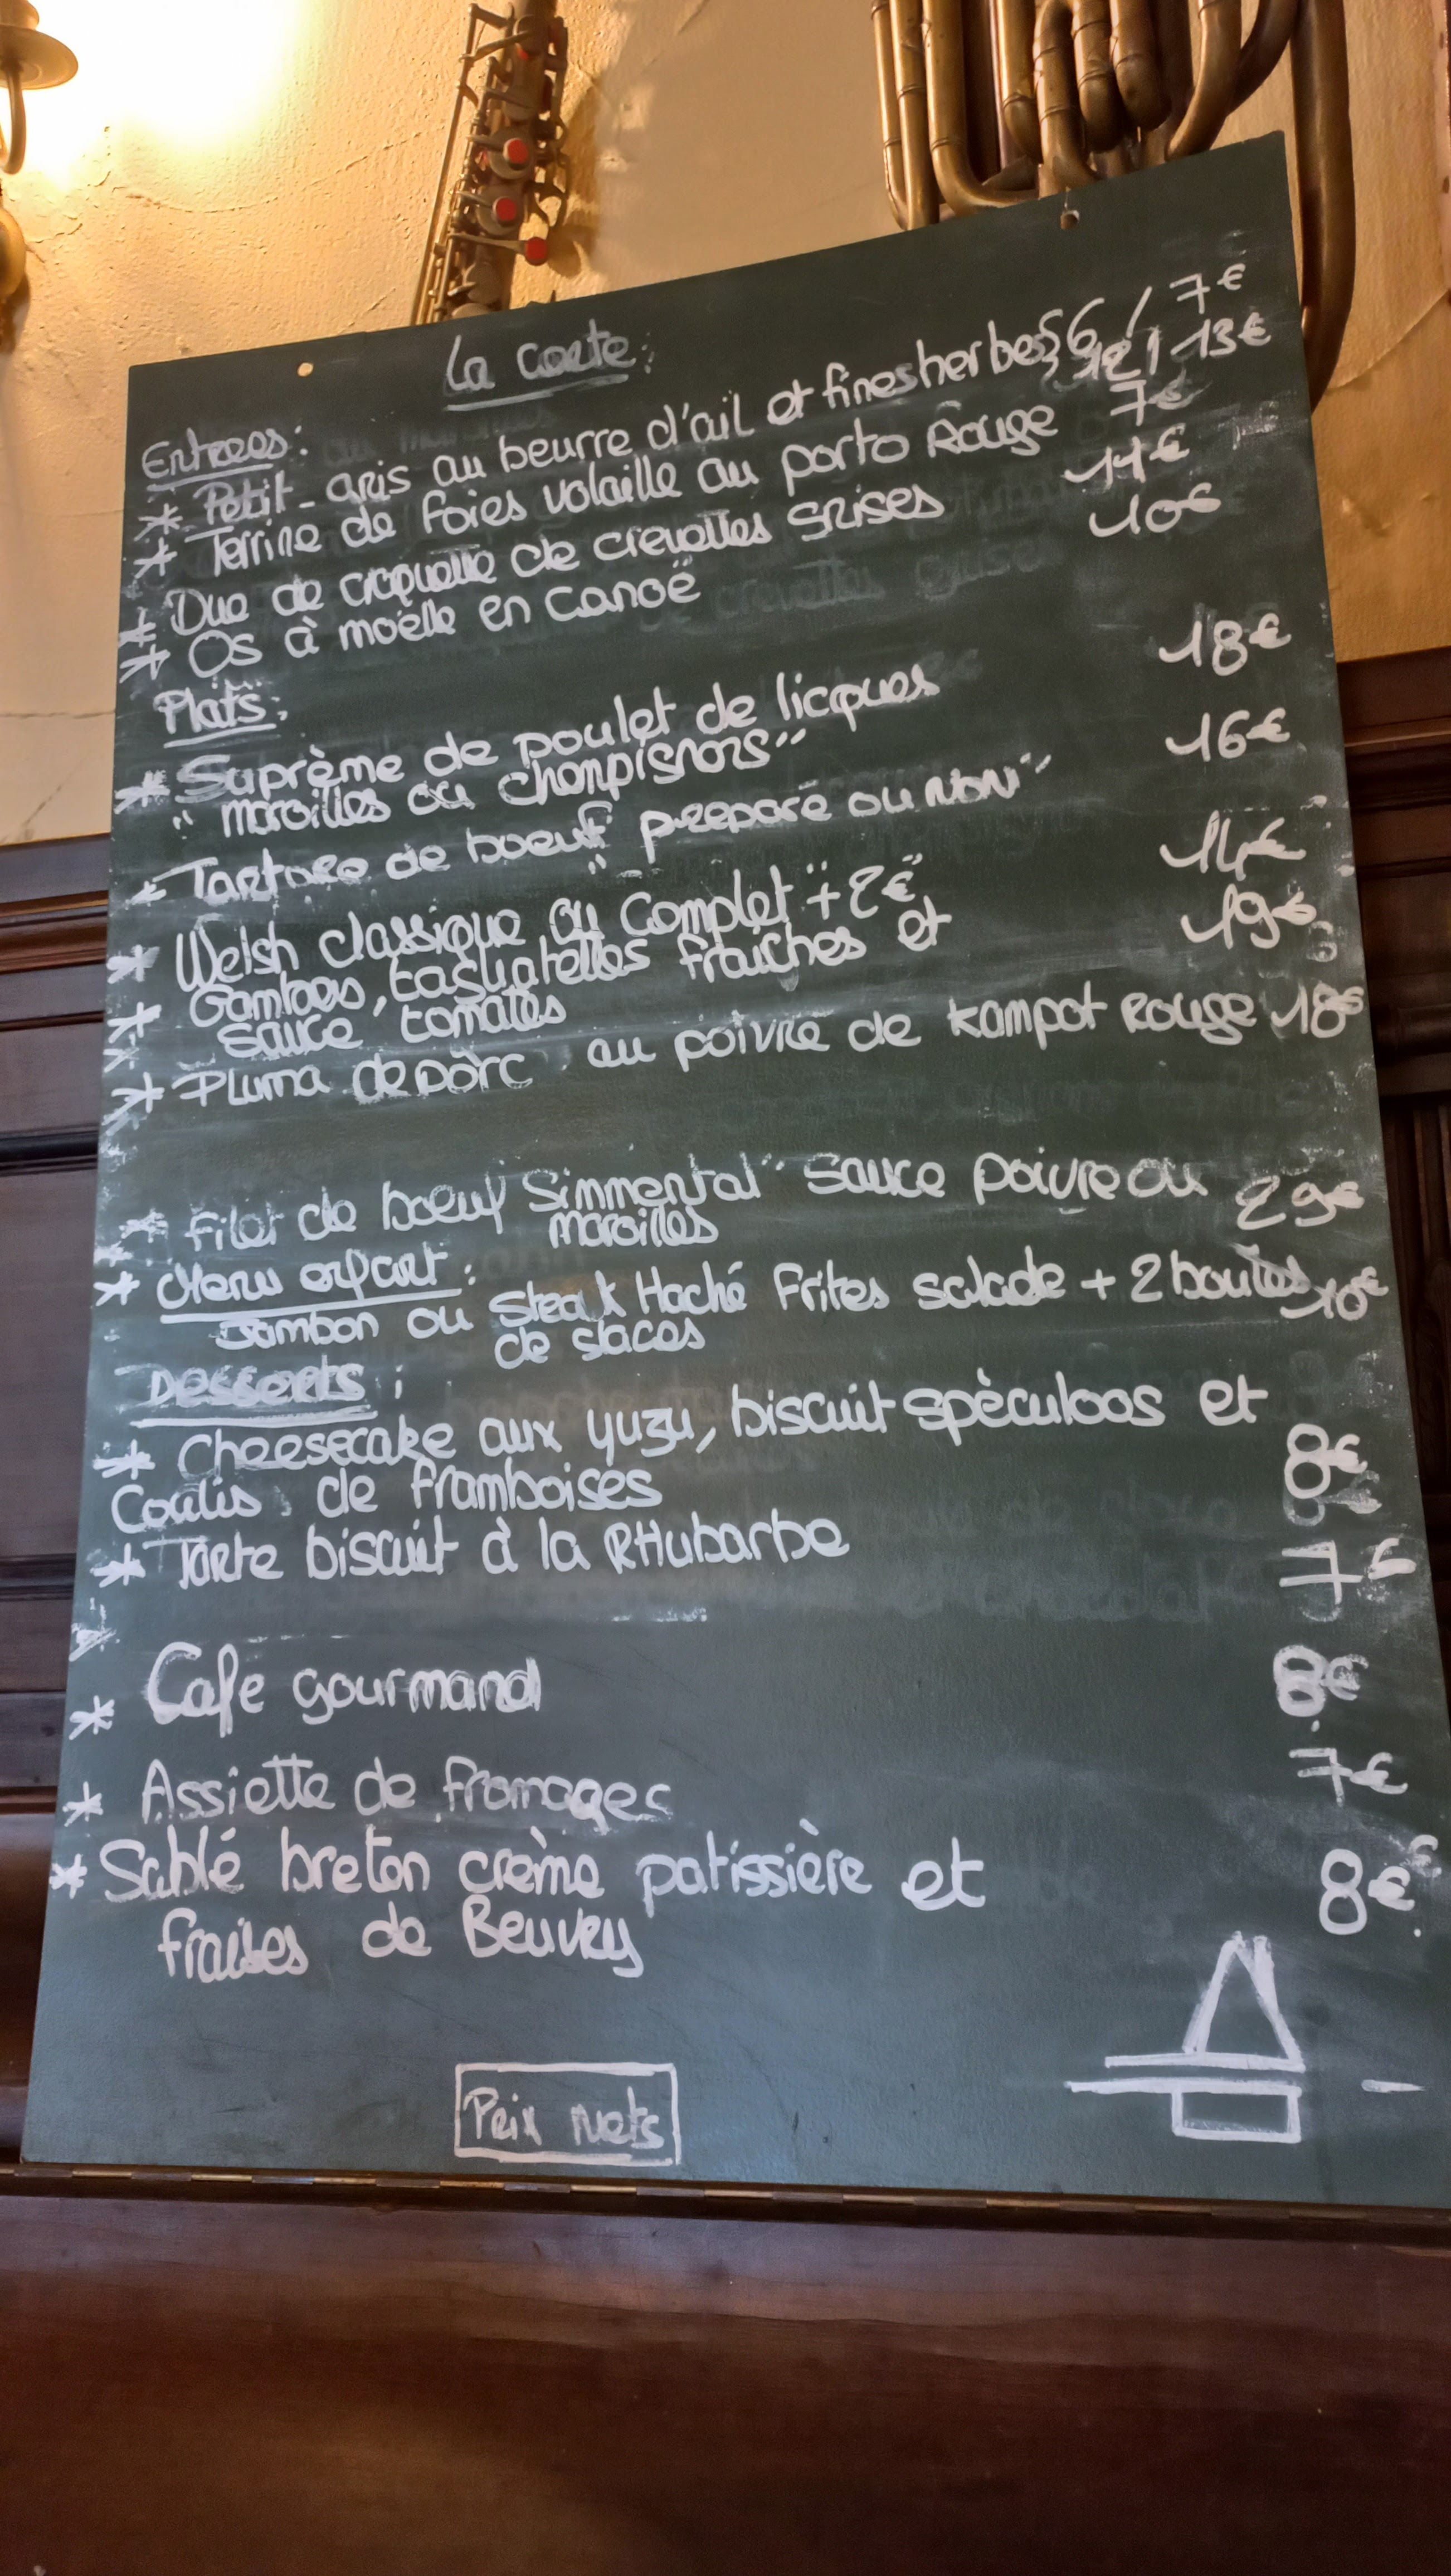 La carte:
Entrees:
* Petit-Gris au beurre d'ail et fines herbes 6 / 7€
12 / 13€
* Terrine de foies volaille au porto Rouge 7€
* Duo de croquette de crevettes grises 14€
* Os à moëlle en canoë 10€
Plats:
* Suprème de poulet de licques 18€
"maroilles ou champignons"
* Tartare de boeuf "preparé ou NON" 16€
* Welsh classique ou Complet "+2€" 14€
* Gambas, tagliatelles fraiches et 19€
sauce tomates
* Pluma de porc au poivre de kampot Rouge 18€
* Filet de boeuf "Simmental" sauce poivre ou 29€
maroilles
* Menu enfant:
Jambon ou Steak Haché Frites salade + 2 boules 10€
de glaces
Desserts:
* Cheesecake aux yuzu, biscuit spèculoos et 8€
Coulis de framboises
* Tarte biscuit à la RHubarbe 7€
* Cafe gourmand 8€
* Assiette de fromages 7€
* Sablé breton crème patissière et 8€
fraises de Beuvry
Prix nets